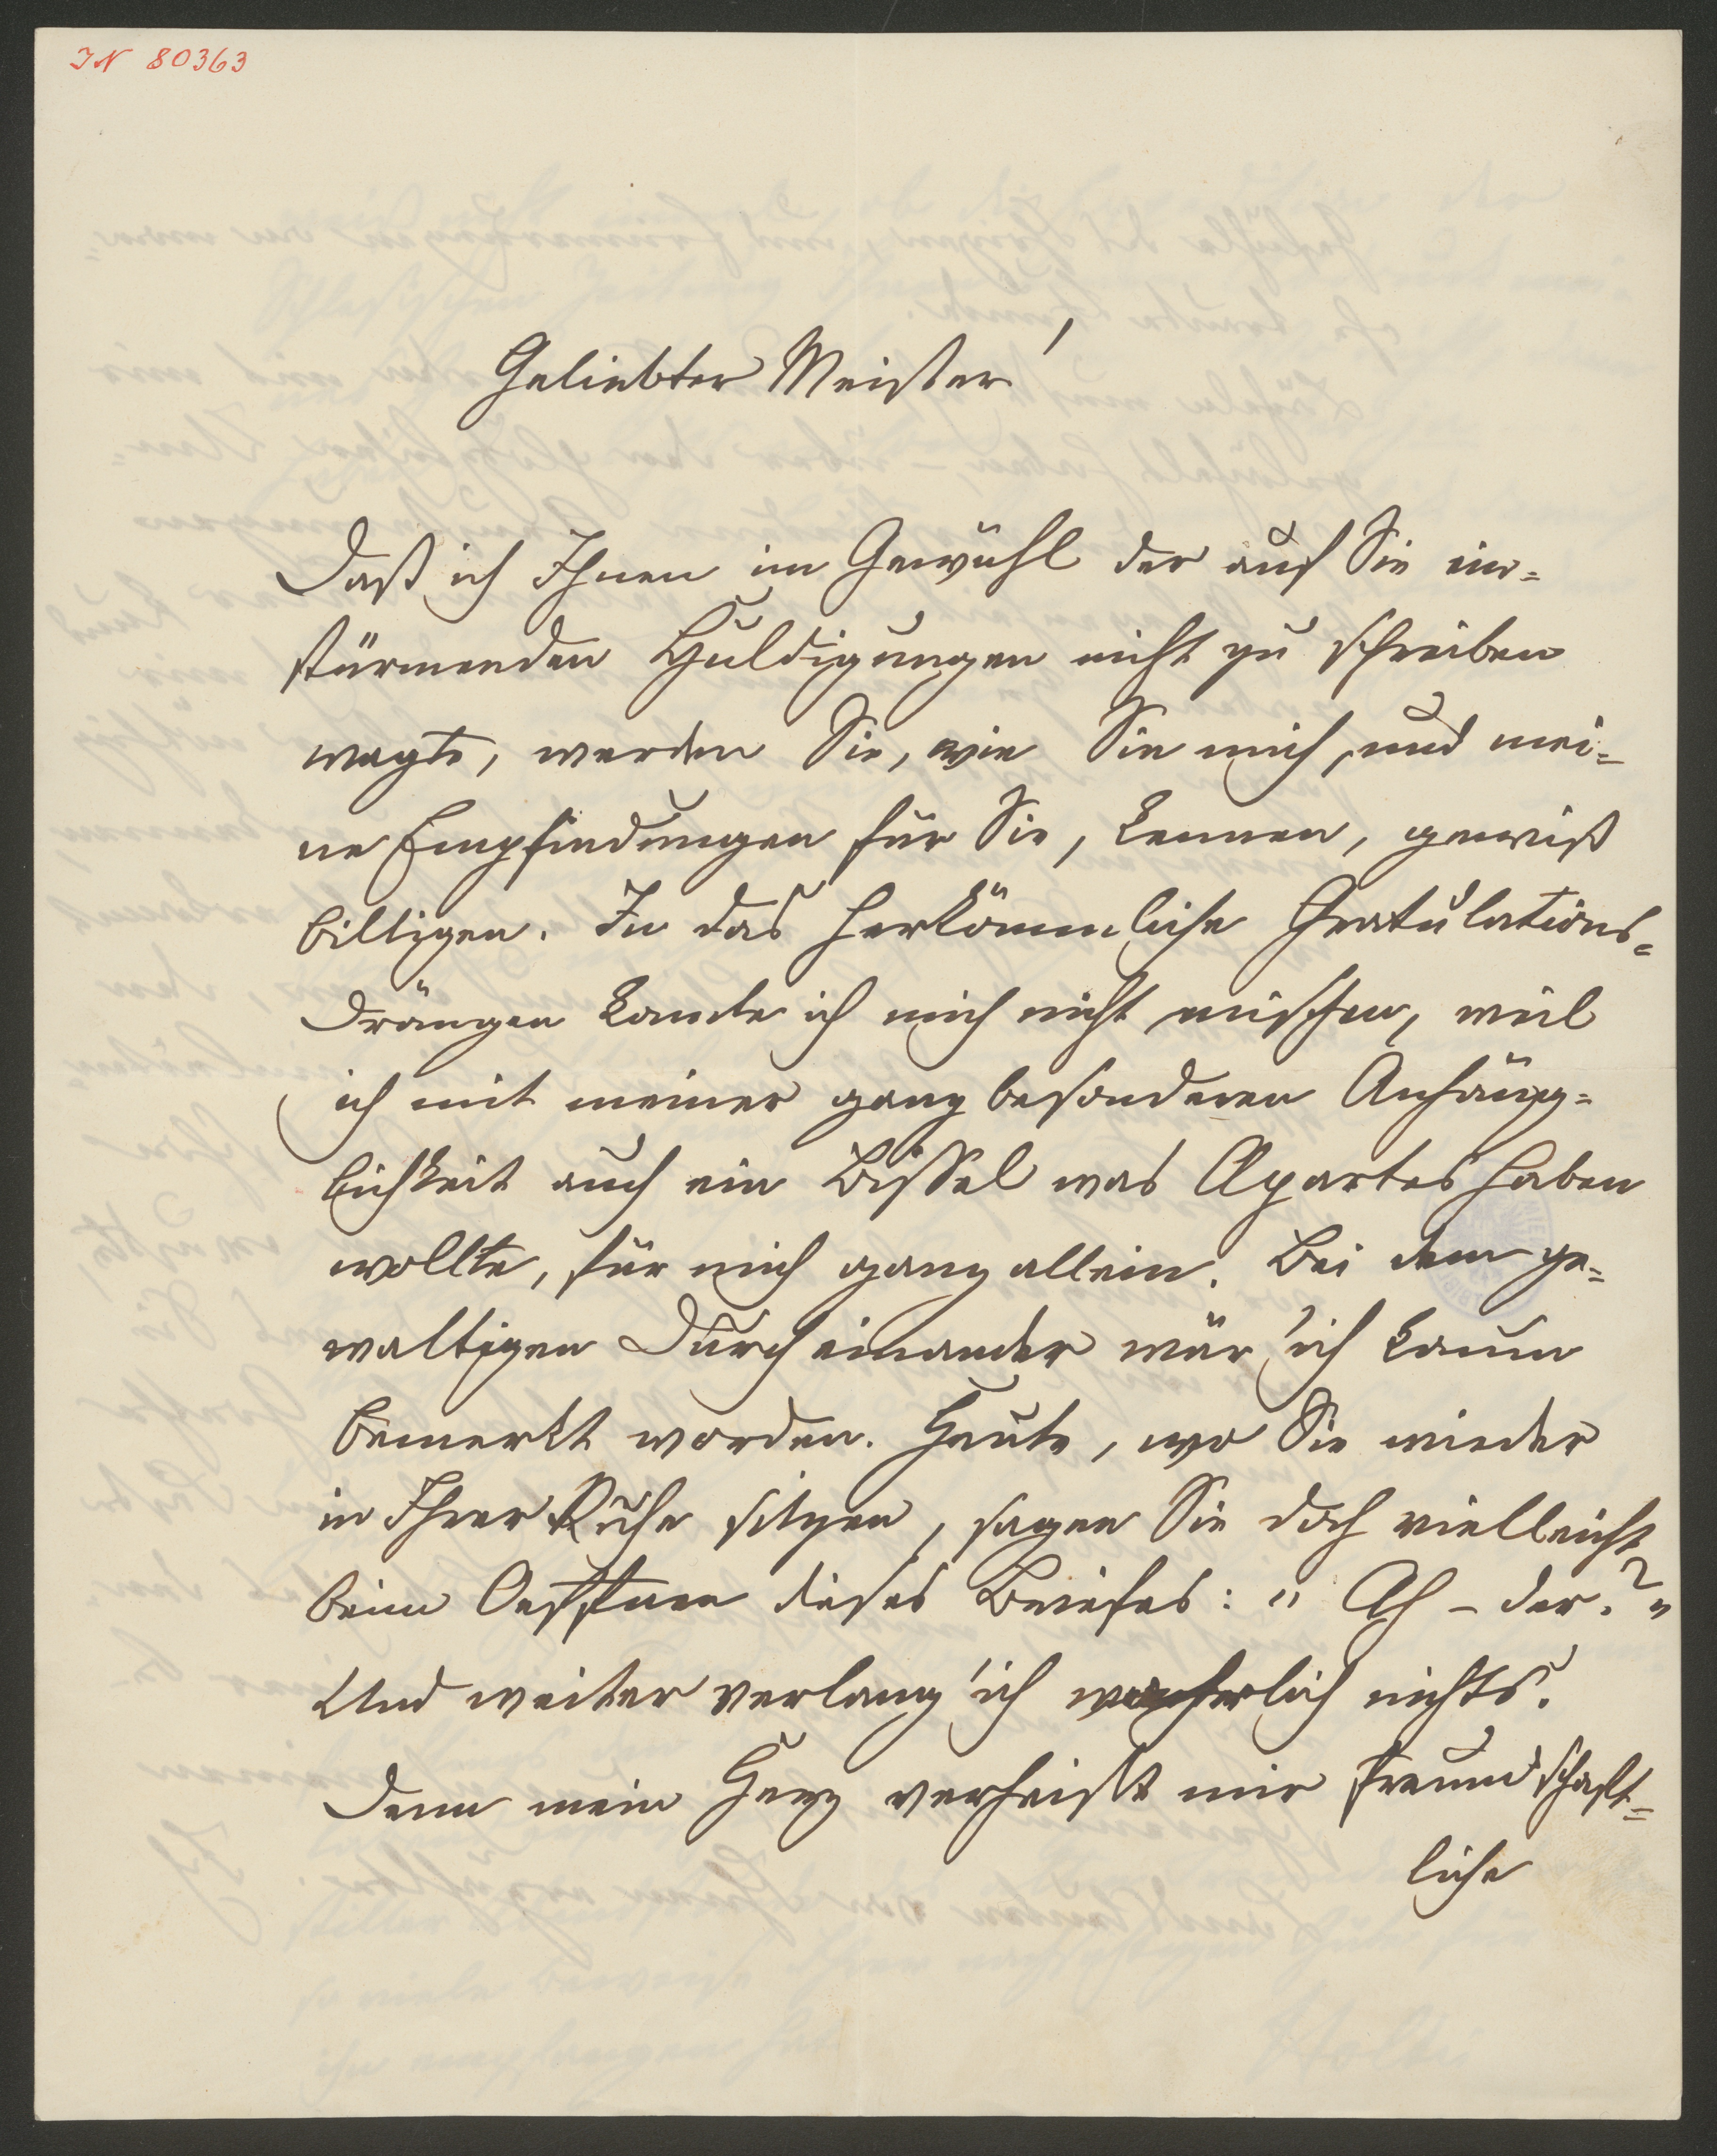 IN 80363
Geliebter Meister!
Daß ich Ihnen im Gewühl der auf Sie ein=
stürmenden Huldigungen nicht zu schreiben
wagte, werden Sie, wie Sie mich, und mei=
ne Empfindungen für Sie, kennen, gewiß
billigen. In das herkömmliche Gratulations=
drängen konnte ich mich nicht mischen, weil
ich mit meiner ganz besonderen Anhäng=
lichkeit auch ein Bissel was Apartes haben
wollte, für mich ganz allein. Bei dem ge=
waltigen Durcheinander wär' ich kaum
bemerkt worden. Heute, wo Sie wieder
in Ihrer Ruhe sitzen, sagen Sie doch vielleicht
beim Oeffnen dieses Briefes: „Ah – der?"
Und weiter verlang' ich wahrlich nichts.
Denn mein Herz verheißt mir freundschaft=
liche